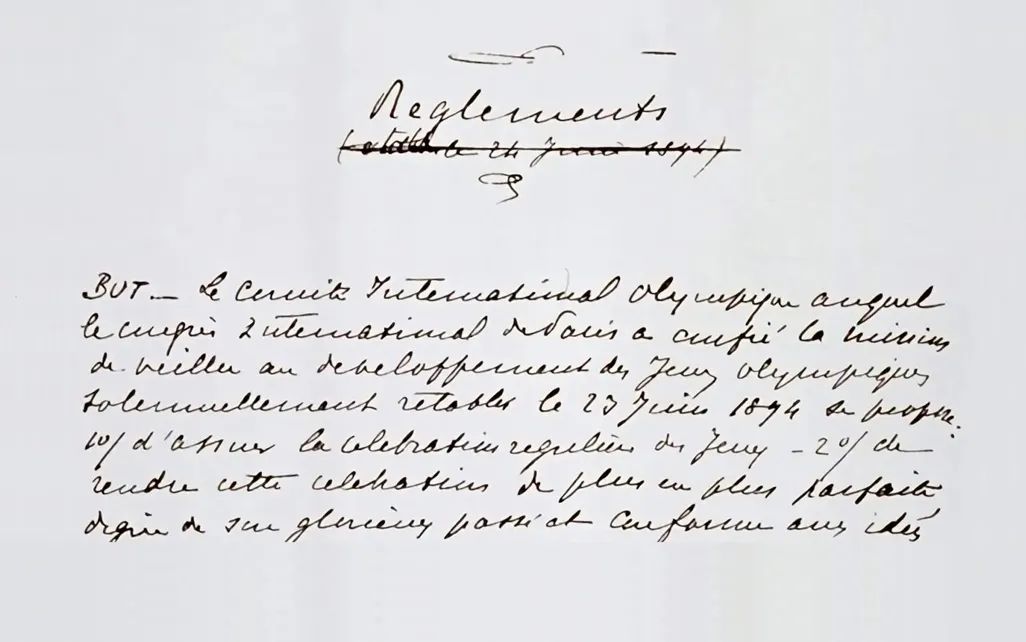 Reglements
(etabli le 24 Juin 1894)
BUT _ Le Comité International Olympique auquel
le congrès International de Paris a confié la mission
de veiller au developpement des Jeux olympiques
solennellement retablis le 23 Juin 1894 se propose:
1o/ d'assurer la celebration reguliere des Jeux _ 2o/ de
rendre cette celebration de plus en plus parfaite
digne de son glorieux passé et conforme aux idées